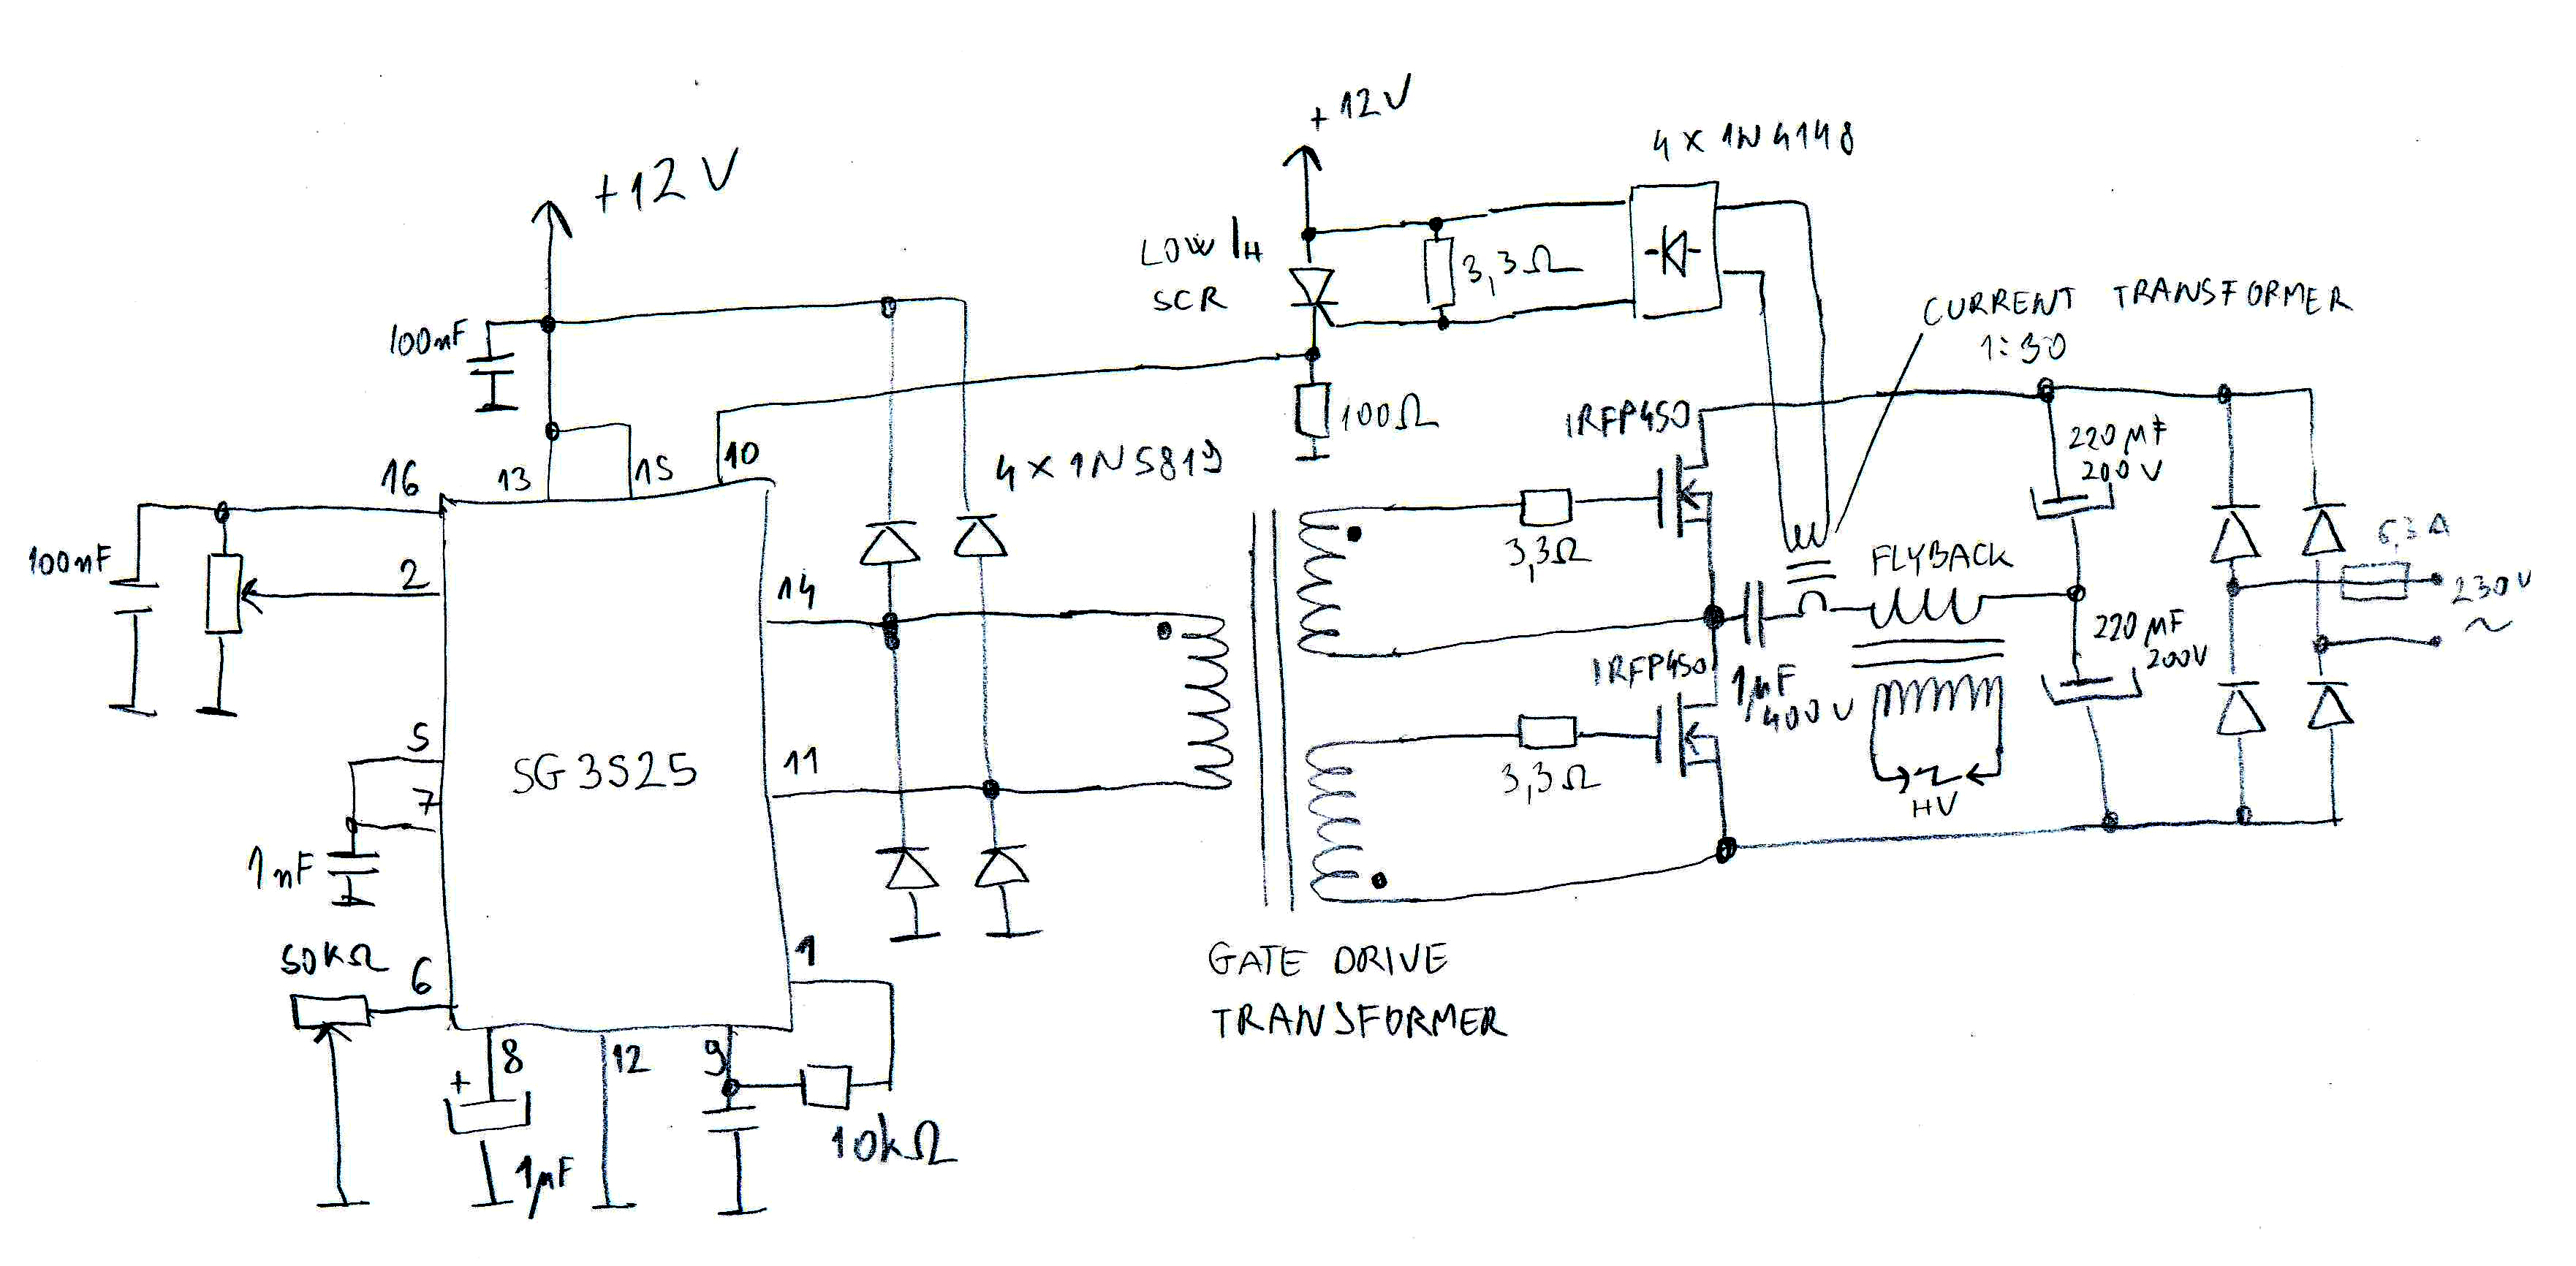 +12V
4 X 1N4148
+12V
LOW IH
SCR
3,3Ω
CURRENT TRANSFORMER
1:30
100nF
100Ω
IRFP450
220µF
200V
16
13
15
10
4 X 1N5819
6,3A
100nF
2
14
3,3Ω
FLYBACK
230V
~
220µF
200V
IRFP450
1µF
400V
5
7
11
SG3525
3,3Ω
HV
1nF
50kΩ
6
1
GATE DRIVE
TRANSFORMER
8
12
9
+
1µF
10kΩ